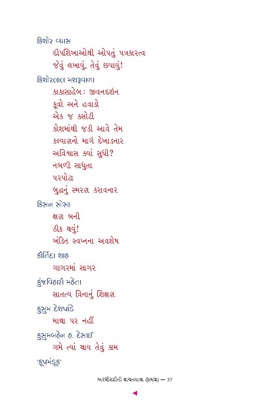 કિશોર વ્યાસ
દીપશિખાઓથી ઓપતું પત્રકારત્વ
જેવું લખાયું, તેવું છપાયું!
કિશોરલાલ મશરૂવાળા
કાકાસાહેબ: જીવનદર્શન
કૂવો અને હવાડો
એક જ કસોટી
કોશમાંથી જડી આવે તેમ
કલ્યાણનો માર્ગ દેખાડનાર
અવિશ્વાસ ક્યાં સુધી?
નબળી સાધુતા
પરપોટા
બુદ્ધનું સ્મરણ કરાવનાર
કિસન સોસા
ક્ષણ બની
ઠીક થયું!
ખંડિત સ્વપ્નના અવશેષ
કીર્તિદા શાહ
ગાગરમાં સાગર
કુંજવિહારી મહેતા
સાતત્ય વિનાનું શિક્ષણ
કુસુમ દેશપાંડે
માથા પર નહીં
કુસુમબહેન હ. દેસાઈ
ગમે ત્યાં થાય તેવું કામ
'કૂપમંડૂક'
અરધીસદીની વાચનયાત્રા (સમગ્ર) — 37